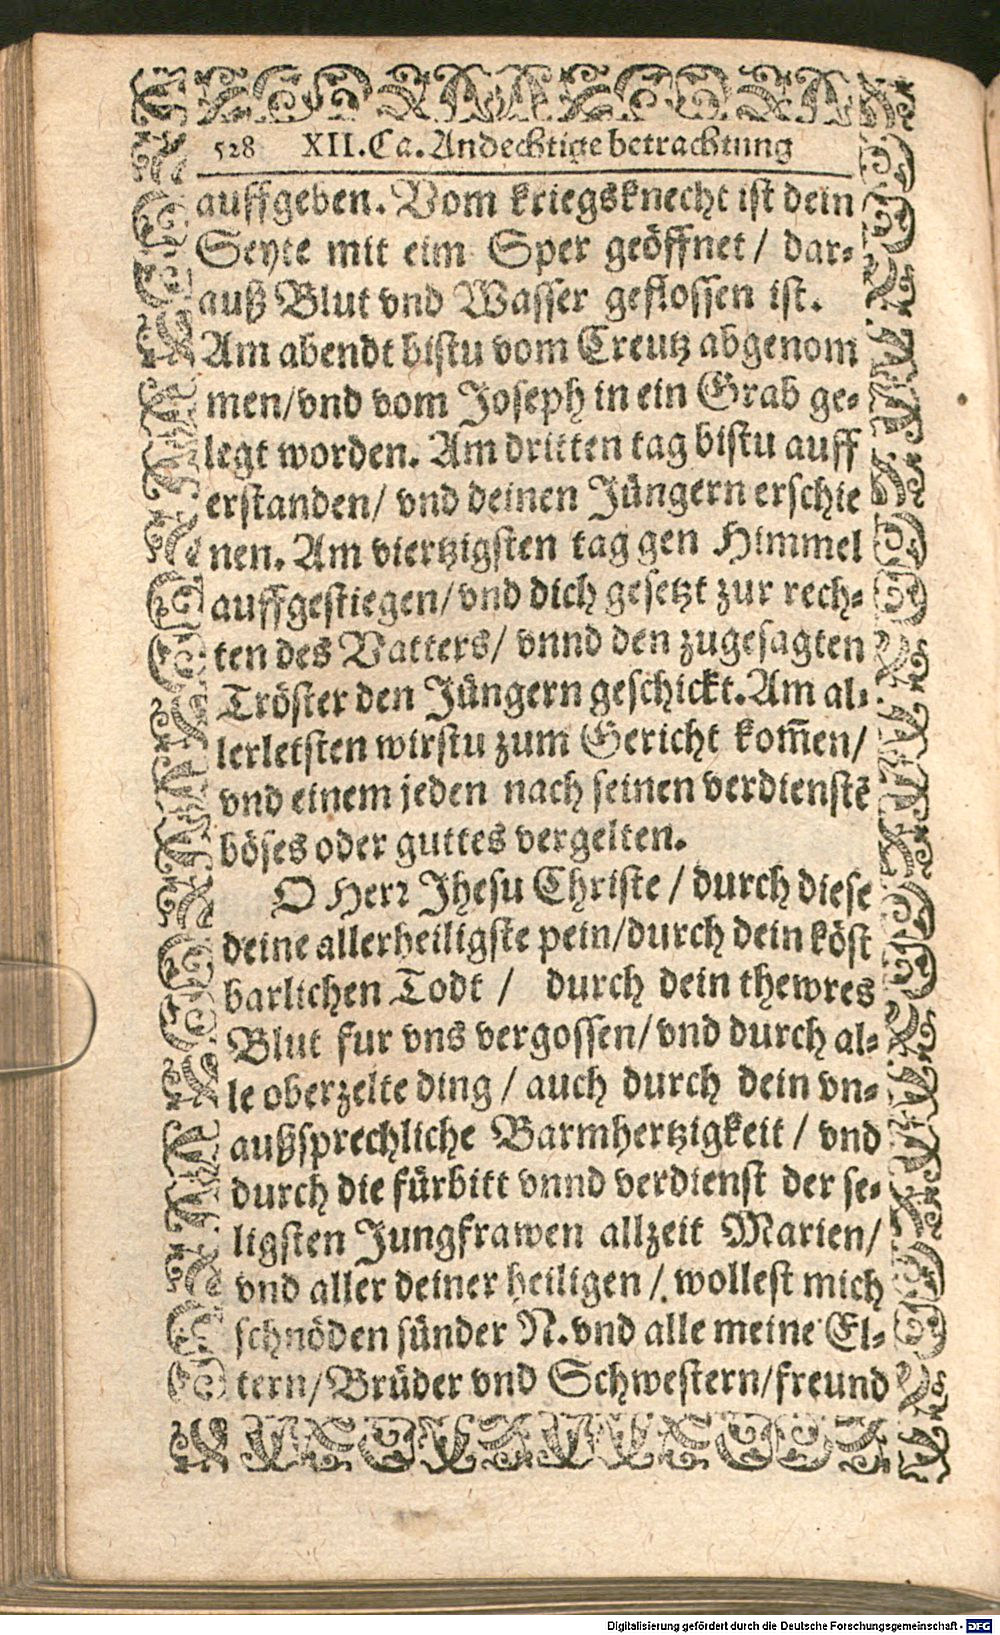 528 XII. Ca. Andechtige betrachtung
auffgeben. Vom kriegsknecht ist dein
Seyte mit eim Sper geöffnet / dar-
auß Blut vnd Wasser geflossen ist.
Am abendt bistu vom Creutz abgenom
men/vnd vom Joseph in ein Grab ge-
legt worden. Am dritten tag bistu auff
erstanden/ vnd deinen Jüngern erschie
nen. Am viertzigsten tag gen Himmel
auffgestiegen/vnd dich gesetzt zur rech-
ten des Vatters/ vnnd den zugesagten
Tröster den Jüngern geschickt. Am al-
lerletsten wirstu zum Gericht kom̃en/
vnd einem jeden nach seinen verdienstẽ
böses oder guttes vergelten.
O Herr Jhesu Christe / durch diese
deine allerheiligste pein/durch dein köst
barlichen Todt / durch dein thewres
Blut fur vns vergossen/vnd durch al-
le oberzelte ding / auch durch dein vn-
außsprechliche Barmhertzigkeit / vnd
durch die fürbitt vnnd verdienst der se-
ligsten Jungfrawen allzeit Marien/
vnd aller deiner heiligen /. wollest mich
schnöden sünder N. vnd alle meine El-
tern/Brüder vnd Schwestern/freund
Digitalisierung gefördert durch die Deutsche Forschungsgemeinschaft - DFG